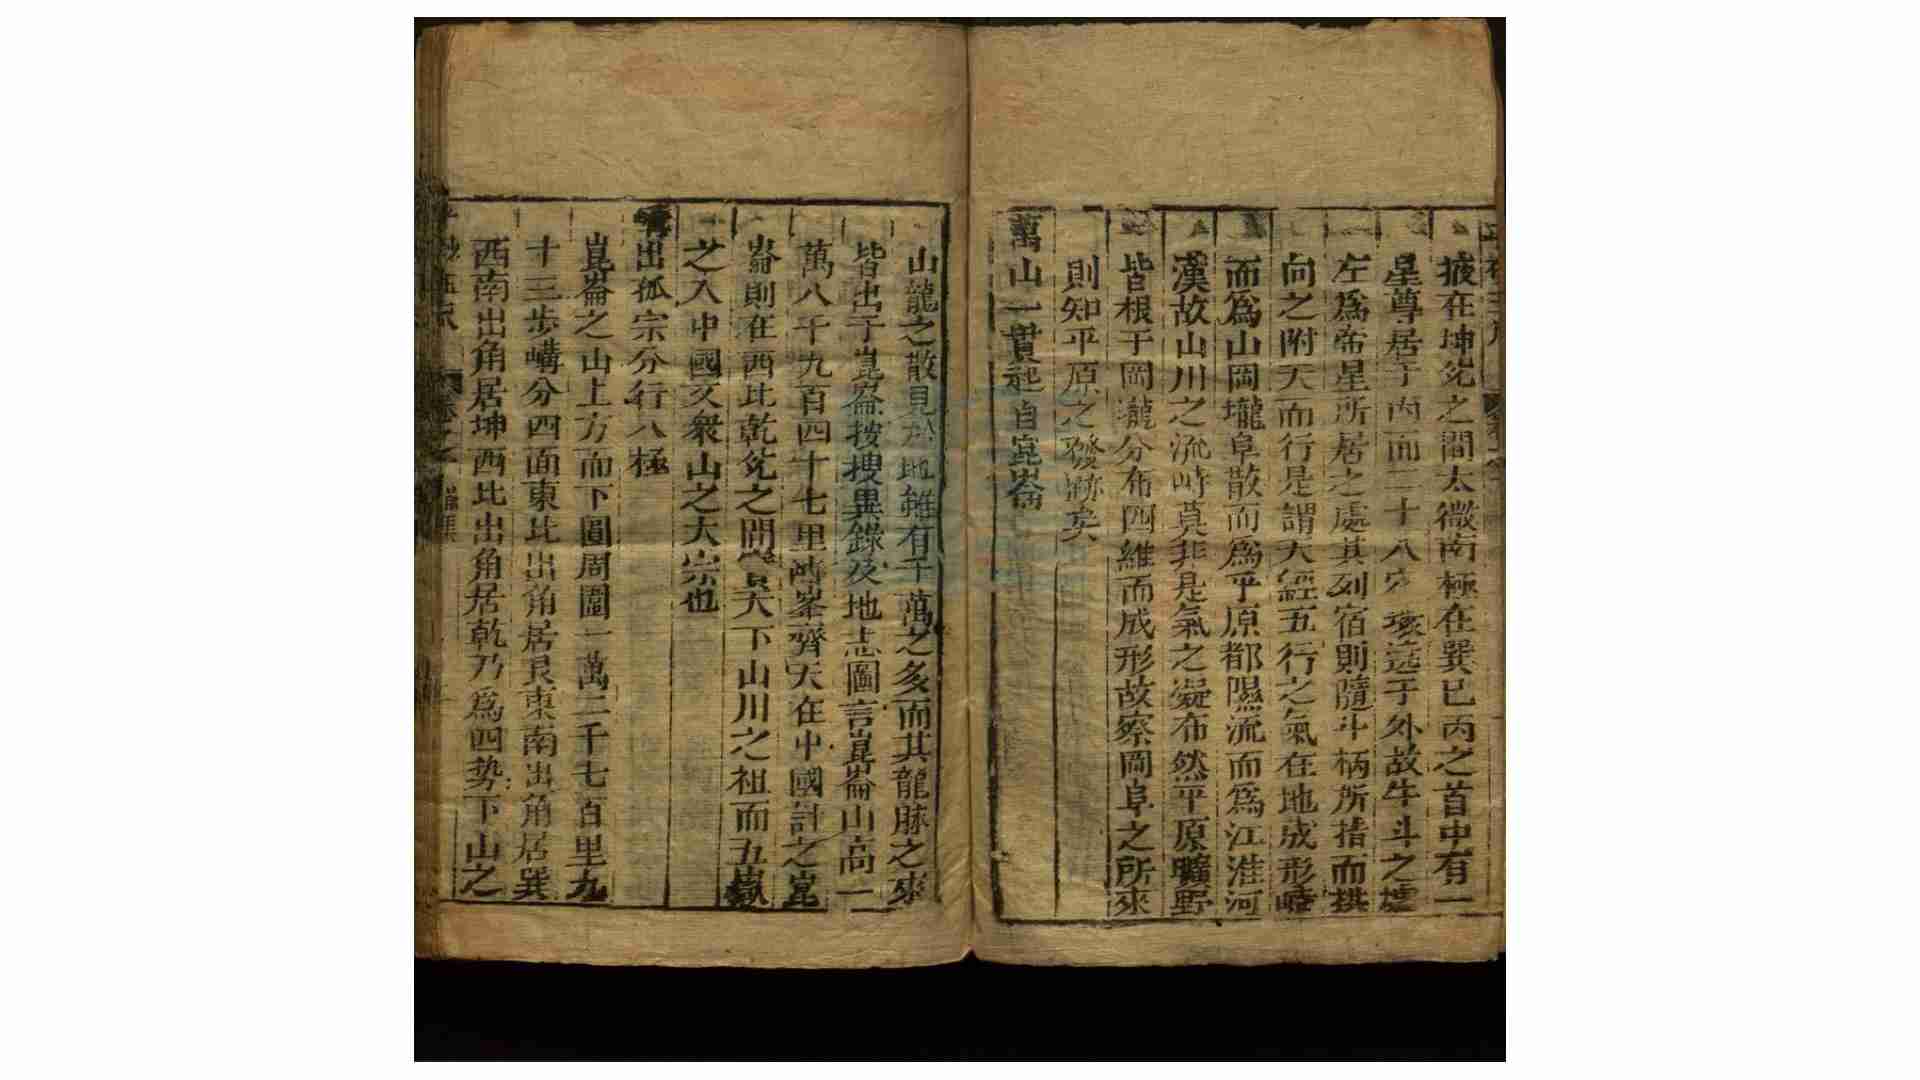 掖在坤兊之間太微南極在巽巳丙之首中有一
星尊居于內而二十八宿環遶于外故牛斗之墟
左爲帝星所居之處其列宿則隨斗柄所指而拱
向之附天而行是謂天經五行之氣在地成形峙
而爲山岡壠阜散而爲平原都隰流而爲江淮河
漢故山川之流峙莫非是氣之凝布然平原曠野
皆根于岡瀧分布四維而成形故察岡阜之所來
則知平原之發跡矣
萬山一貫起自崑崙
山龍之散見於地雖有千萬之多而其龍脉之來
皆出于崑崙按搜異錄及地志圖言崑崙山高一
萬八千九百四十七里峙峯齊天在中國計之崑
崙則在西北乾兊之間 天下山川之祖而五嶽
之入中國又衆山之大宗也
出孤宗分行八極
崑崙之山上方而下圓周圍一萬二千七百里九
十三步嶙分四面東北出角居艮東南出角居巽
西南出角居坤西北出角居乾乃爲四勢下山之